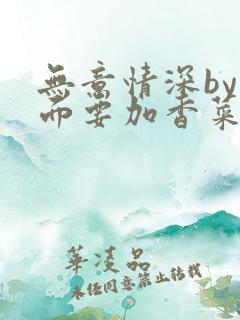 無意情深by
而要加香菜
華淩品
未任同意禁止转载